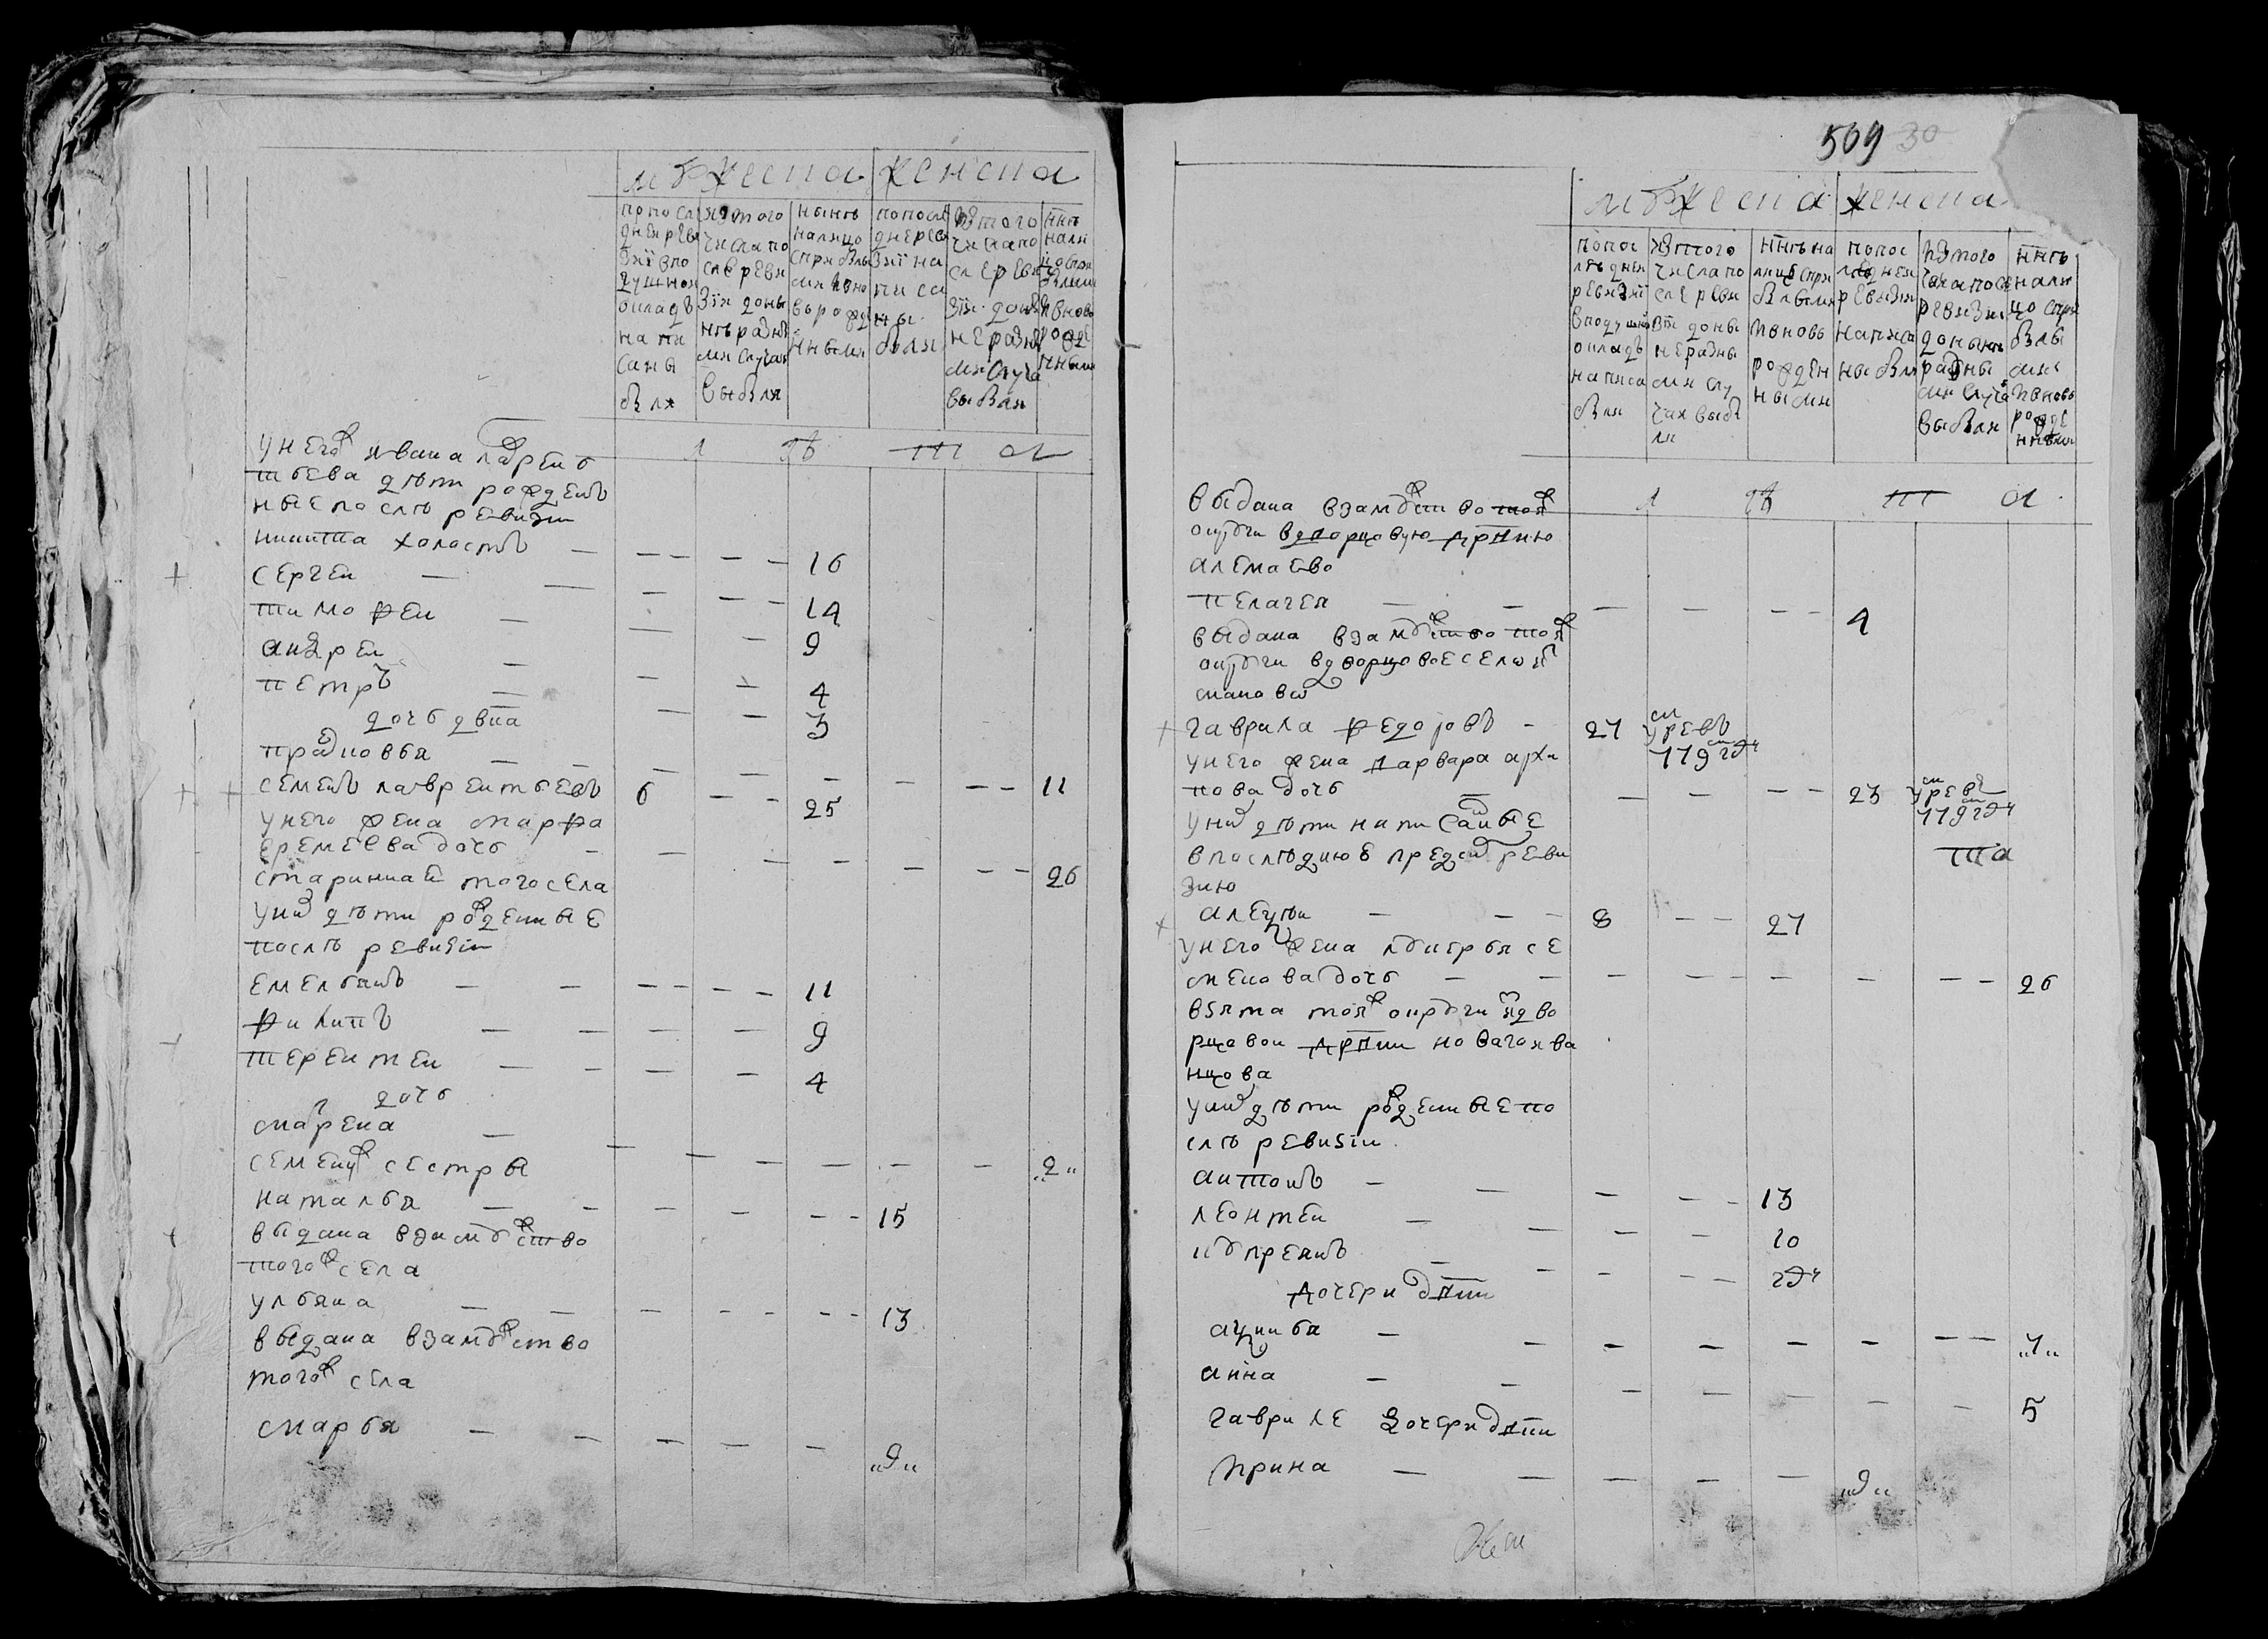 509 30
мужеска женска
по послѣ
дней реви
зіи в по
душной
окладъ
напи
саны
были
изъ того
числа по
слѣ реви
зіи до ны
нѣ разны
ми случаи
выбыли
нынѣ
налицо
с прибылы
ми и вно
въ рожде
нными
по послѣ
дне реви
зіи на
писа
ны
были
изъ того
числа по
сле реви
зіи доны
не разны
ми случа
выбыли
ннѣ
нали
цо с при
былыми
и вновь
рожде
нными
лѣта
у него ж ивана лаврень
тьева дѣти рожден
ные послѣ ревизіи
никита холостъ 16
сергеи 14
тимофеи 9
андреи 4
петръ 3
дочь двка
прасковья 11
семенъ лаврентьевъ 6 25
у него жена марфа
еремеева дочь 26
старинная того села
у них дѣти рожденные
послѣ ревизіи
емельянъ 11
филипъ 9
терентеи 4
дочь
марена 2
семену ж сестры
наталья 15
выдана в замужство
того ж села
ульяна 13
выдана в замужство
того ж села
марья 9
мужеска женска
по пос
лѣдней
ревизіи
в подушной
окладъ
написа
были
изъ того
числа по
сле реви
зіи доны
не разны
ми слу
чаи выбы
ли
ннѣ на
лицо с при
былыми
и вновь
рожден
ными
по пос
ледней
ревизіи
написа
ны были
изъ того
числа после
ревизіи
донынѣ
разны
ми случа
выбыли
ннѣ
нали
цо с при
былы
ми и
вновь
рожде
нными
лѣта
выдана в замужство тоя ж
округи в дворцовую дрвню
алемаево
пелагея 4
выдана в замужство тоя ж
округи в дворцовое село
гаврила федоровъ 27
у него жена варвара архи
пова дочь 23
у них дѣти написанные
в последнюю пред сим реви
зию
алеѯѣи 8 27
у него жена лукерья се
менова дочь 26
взята тоя ж округи из дво
рцовои дрвни новаго ива
нцова
у них дѣти рожденные по
слѣ ревизіи
антонъ 13
леонтеи 10
купреянъ
дочери двки
аѯинья 7
анна 5
гавриле дочери двки
ирина 9